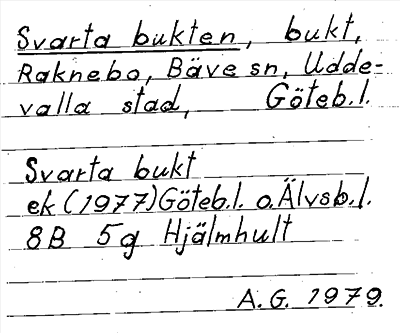 Svarta bukten, bukt,
Raknebo, Bäve sn, Udde-
valla stad, Göteb.l.
Svarta bukt
ek (1977) Göteb.l. o. Älvsb.l.
8B 5g Hjälmhult
A.G. 1979.